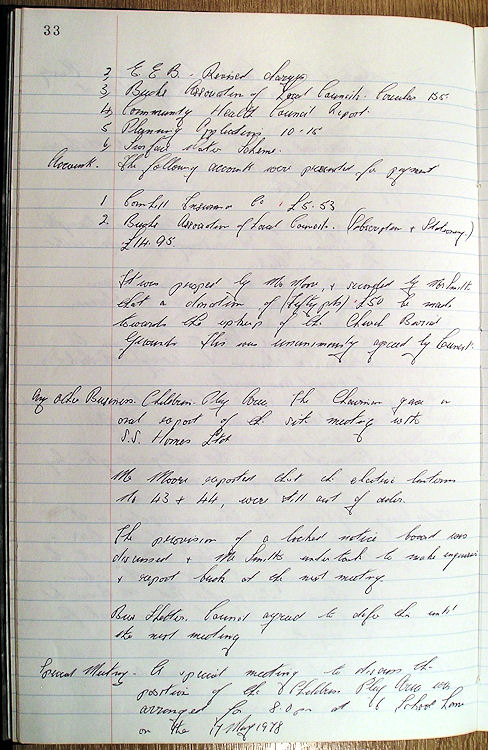 33
3, E E B. Revised
3, Bucks Association of Local Councils. Circular 135
4, Community Health Council Report.
5 Planning Applications 10-15
6 Surface Water Scheme.
Accounts. The following accounts were presented for payment
1 Cornhill Insurance Co £5.53
2. Bucks Association of Local Councils. (Subscription + Stationary.)
£14.95
It was proposed by Mr Moore, + seconded by Mr Smith
that a donation of (fifty pds) £50 be made
towards the upkeep of the Church Burial
Grounds this was unanimously agreed by Council.
Any other Business. Children Play Area The Chairman gave a
oral report of the site meeting with
S.S. Homes Ltd
Mr Moore reported that the electric lanterns
No 43 + 44, were still out of order.
The provision of a locked notice board was
discussed + Mr Smith undertook to make
+ report back at the next meeting
Bus Shelter. Council agreed to defer this until
the next meeting
Special Meeting. A special meeting to discuss the
position of the Children Play Area was
arranged for 8.0 pm at School
on the 17 May 1978